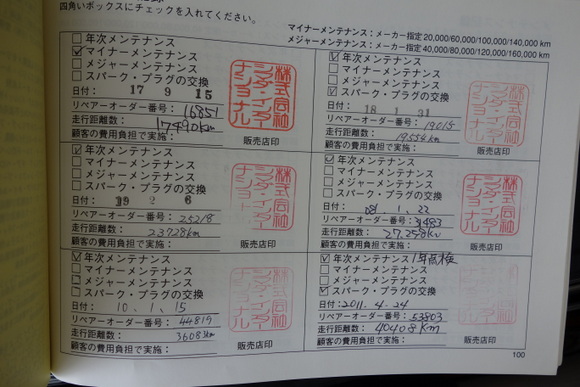 四角いボックスにチェックを入れてください。
マイナーメンテナンス：メーカー指定 20,000/60,000/100,000/140,000 km
メジャーメンテナンス：メーカー指定 40,000/80,000/120,000/160,000 km
年次メンテナンス
マイナーメンテナンス
メジャーメンテナンス
スパーク・プラグの交換
日付： 17 9 15
リペアーオーダー番号： 16851
走行距離数： 17490km
顧客の費用負担で実施：
販売店印
年次メンテナンス
マイナーメンテナンス
メジャーメンテナンス
スパーク・プラグの交換
日付： 18 1 31
リペアーオーダー番号： 19015
走行距離数： 19554km
顧客の費用負担で実施：
販売店印
年次メンテナンス
マイナーメンテナンス
メジャーメンテナンス
スパーク・プラグの交換
日付： 19 2 6
リペアーオーダー番号： 25218
走行距離数： 23728km
顧客の費用負担で実施：
販売店印
年次メンテナンス
マイナーメンテナンス
メジャーメンテナンス
スパーク・プラグの交換
日付： 1. 22
リペアーオーダー番号：
走行距離数： 27.258km
顧客の費用負担で実施：
販売店印
年次メンテナンス
マイナーメンテナンス
メジャーメンテナンス
スパーク・プラグの交換
日付： 10. 1. 15
リペアーオーダー番号： 44819
走行距離数： 36083km
顧客の費用負担で実施：
販売店印
年次メンテナンス 1年点検
マイナーメンテナンス
メジャーメンテナンス
スパーク・プラグの交換
日付：2011. 4. 24
リペアーオーダー番号： 53803
走行距離数： 40408km
顧客の費用負担で実施：
販売店印
100